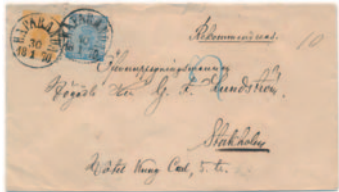 HAPARANDA HAPARANDA
30
Rekommenderas.
10
2
Högädle Herr G. F. Lundström,
Stockholm
Hôtel Kung Carl, 5. tr.